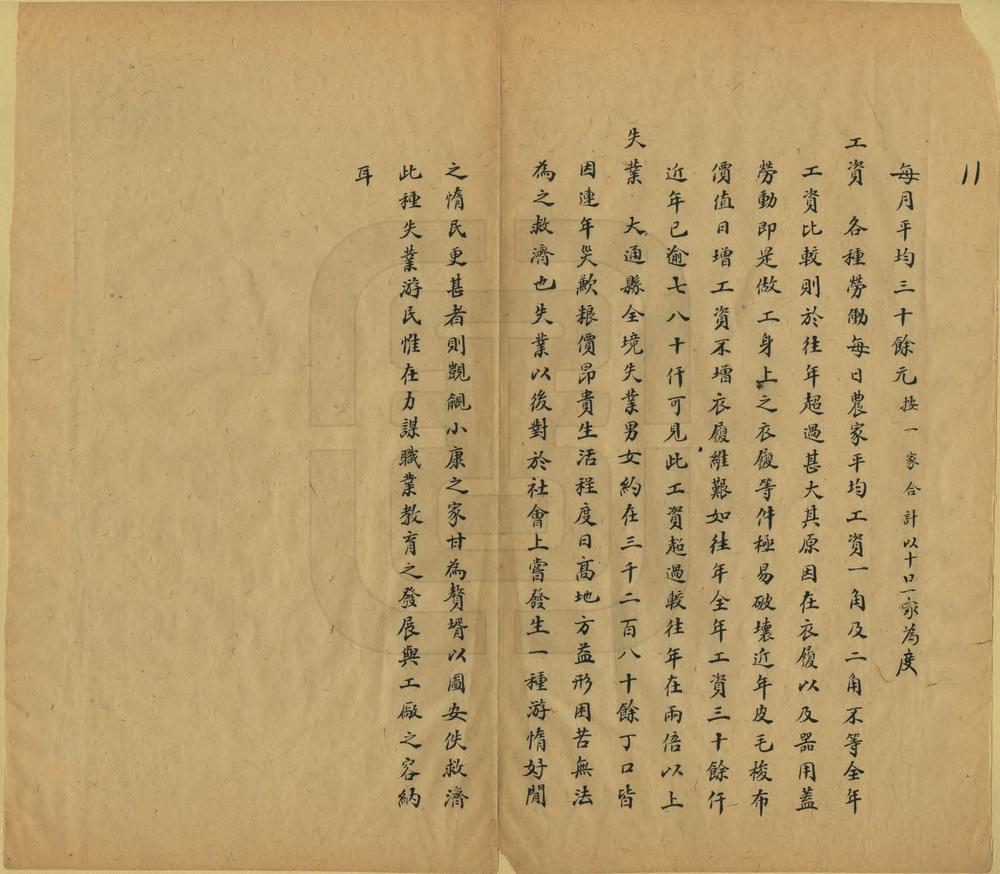 11
每月平均三十餘元按一家合計以十口一家為度
工資 各種勞働每日農家平均工資一角及二角不等全年
工資比較則於往年超過甚大其原因在衣履以及器用蓋
勞動即是做工身上之衣履等件極易破壞近年皮毛梭布
價值日增工資不增衣履維艱如往年全年工資三十餘仟
近年已逾七八十仟可見此工資超過較往年在兩倍以上
失業 大通縣全境失業男女約在三千二百八十餘丁口皆
因連年災歉粮價昂貴生活程度日高地方益形困苦無法
為之救濟也失業以後對於社會上嘗發生一種游惰好閒
之惰民更甚者則覬覦小康之家甘為贅壻以圖安佚救濟
此種失業游民惟在力謀職業教育之發展與工厰之容納
耳